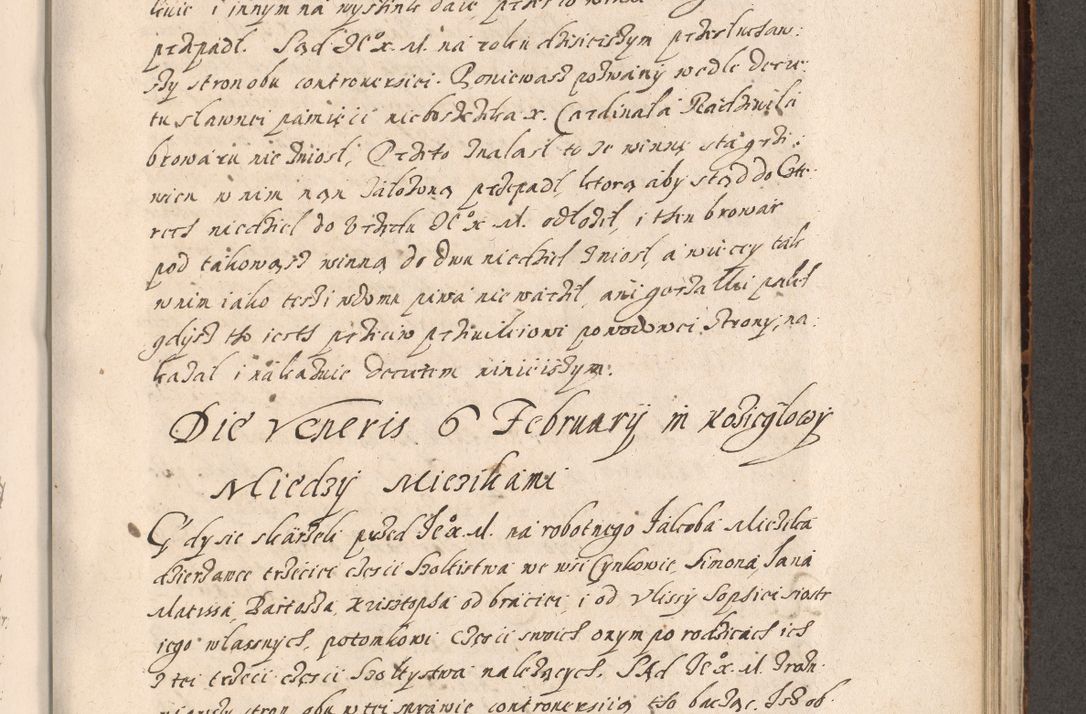 lenie i innym na wyszink daie, przeto winą
przepadł. Sąd Je° x. M. na roku dzisieiszym przesłuchaw:
szy stron obu controuersiei. Poniewasz pozwany wedle decre:
tu sławnei pamięci nieboszczika x. Cardinała Radziwiła
browaru nie zniosł, Przeto znalasł to że winnę sta grzi:
wien w nim nań założoną przepadł, ktorą aby stąd do czte:
rech niedziel do Urzędu Je° x. M. odłożił, i ten browar
pod takowąsz winną do dwu niedziel zniosł, a więcey tak
w nim iako teszi w domu piwa nie warził, ani gorzałki palił
gdysz to iest przeciw przywileiowi powodowei strony, na:
kazał i nakazuie decretem ninieiszym.
Die Veneris 6 February in Kozieglowy
Miedzy Miczikami
Gdy sie skarżeli przed Je° x. M. na robotnego Jakoba Miczika
dzierżawce trzeciei części szołtistwa we wsi Cynkowie, Simona, Jana
Matissa, Bartosza, Krisztopha od braciei, i od Ulissy Sophiei siostr
iego własnych, potomkowi części swoich onym po rodzicach ich
z tei trzeci części szołtystwa należących. Sąd Je° x. M. zrozu
miawszy stron obu w tei sprawie controuersiią to bacząc. Isz ob